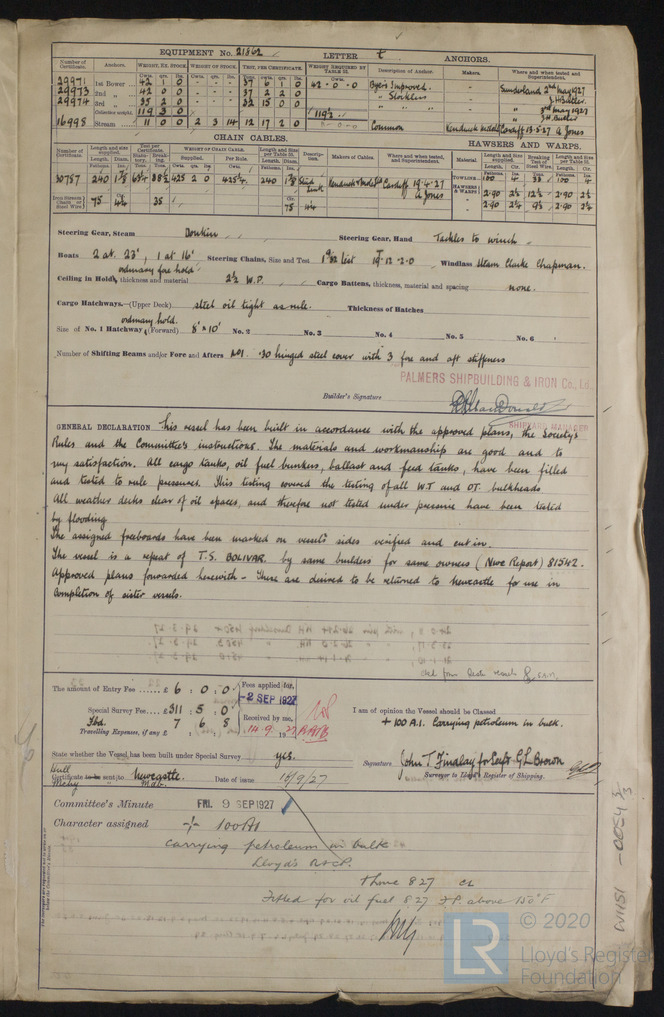 EQUIPMENT No. 21862 LETTER t ANCHORS.
Number of Certificate. Anchors. WEIGHT, EX. STOCK. WEIGHT OF STOCK. TEST, PER CERTIFICATE. WEIGHT REQUIRED BY TABLE 22. Description of Anchor. Makers. Where and when tested and Superintendent.
29971 1st Bower 42 1 0 - - - 37 6 1 0 42-0-0 Byers Improved. Sunderland 2nd May 1927
29973 2nd " 42 0 0 - - - 37 2 2 0 " Stockless J.H. Butler.
29974 3rd " 35 2 0 - - - 32 15 0 0 " " " 3rd May 1927
Collective weight. 119 3 0 119½ J.H. Butler
16998 Stream 11 0 0 2 3 14 12 17 2 0 Common Cardiff 13-5-27 A Jones
CHAIN CABLES. HAWSERS AND WARPS.
Number of Certificate. Length and size supplied. Test per Certificate. WEIGHT OF CHAIN CABLE. Length and Size per Table 22. Description. Makers of Cables. Where and when tested, and Superintendent. Material Length and Size supplied. Breaking Test of Steel Wire. Length and Size per Table 22.
30787 240 425 2 0 425¼ 240 Stud Link Cardiff 19.4.27
A Jones
TOWLINE
HAWSERS & WARPS
Iron Stream Chain or Steel Wire 75 35 75
Steering Gear, Steam Donkin Steering Gear, Hand Tackles to winch
Boats 2 at 23', 1 at 16' Steering Chains, Size and Test 19-12-2-0 Windlass Steam Clarke Chapman.
ordinary fore hold
Ceiling in Holds, thickness and material 2½ W.P. Cargo Battens, thickness, material and spacing none.
Cargo Hatchways.—(Upper Deck) steel oil tight as rule. Thickness of Hatches
ordinary hold.
Size of No. 1 Hatchway (Forward) 8' x 10' No. 2 No. 3 No. 4 No. 5 No. 6
Number of Shifting Beams and/or Fore and Afters No1 .30 hinged steel cover with 3 fore and aft stiffeners
PALMERS SHIPBUILDING & IRON Co., Ld.,
Builder's Signature
SHIPYARD MANAGER
GENERAL DECLARATION This vessel has been built in accordance with the approved plans, the Society's
Rules and the Committee's instructions. The materials and workmanship are good and to
my satisfaction. All cargo tanks, oil fuel bunkers, ballast and feed tanks, have been filled
and tested to rule pressures. This testing covered the testing of all W.T and O.T. bulkheads
All weather decks clear of oil spaces, and therefore not tested under pressure have been tested
by flooding
The assigned freeboards have been marked on vessel's sides verified and cut in.
The vessel is a repeat of T.S. BOLIVAR. by same builders for same owners (Nwc Report) 81542.
Approved plans forwarded herewith - These are desired to be returned to Newcastle for use in
completion of sister vessels.
The amount of Entry Fee £ 6 : 0 : 0 Fees applied for,
-2 SEP 1927
Special Survey Fee £311 : 5 : 0 Received by me,
Lbd. 7 6 8
Travelling Expenses, if any £ 14.9.1927
I am of opinion the Vessel should be Classed
+ 100 A.1. Carrying petroleum in bulk.
State whether the Vessel has been built under Special Survey yes.
Signature John T. Findlay for Self & G L Brown
Surveyor to Lloyd's Register of Shipping.
Hull Certificate to be sent to Newcastle Date of issue 16/9/27
Mchy " Mdb.
Committee's Minute FRI. 9 SEP 1927
Character assigned + 100A1
Carrying petroleum in bulk
Lloyd's A&CP.
Fitted for oil fuel 8.27 F.P. above 150°F
W1151-0054 2/3
LR © 2020
Lloyd's Register
Foundation